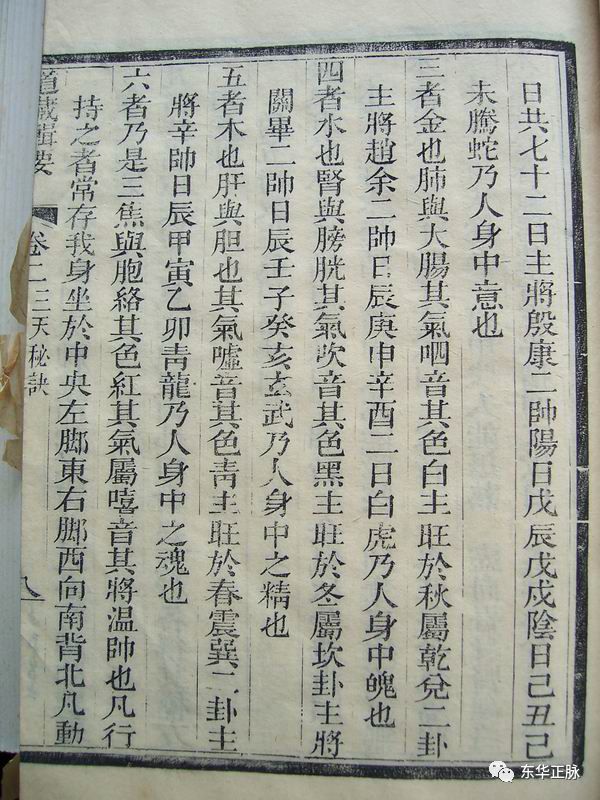 日共七十二日主將殷康二帥陽日戊辰戊戍陰日己丑己
未騰蛇乃人身中意也
三者金也肺與大腸其氣呬音其色白主旺於秋屬乾兌二卦
主將趙余二帥日辰庚申辛酉二日白虎乃人身中魄也
四者水也腎與膀胱其氣吹音其色黑主旺於冬屬坎卦主將
關畢二帥日辰壬子癸亥玄武乃人身中之精也
五者木也肝與胆也其氣噓音其色靑主旺於春震巽二卦主
將辛帥日辰甲寅乙卯靑龍乃人身中之魂也
六者乃是三焦與胞絡其色紅其氣屬嘻音其將溫帥也凡行
持之者常存我身坐於中央左脚東右脚西向南背北凡動
道藏輯要
卷二三天秘訣
八
东华正脉